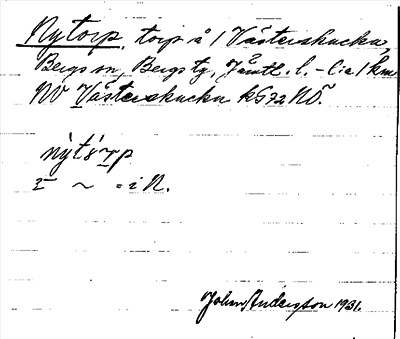 Nytorp, torp å 1 Västerskucku,
Bergs sn, Bergs tg, Jämtl. l. - C:a 1 km
NV Västerskucku kG32NÖ.
~ = i N.
John Andersson 1931.